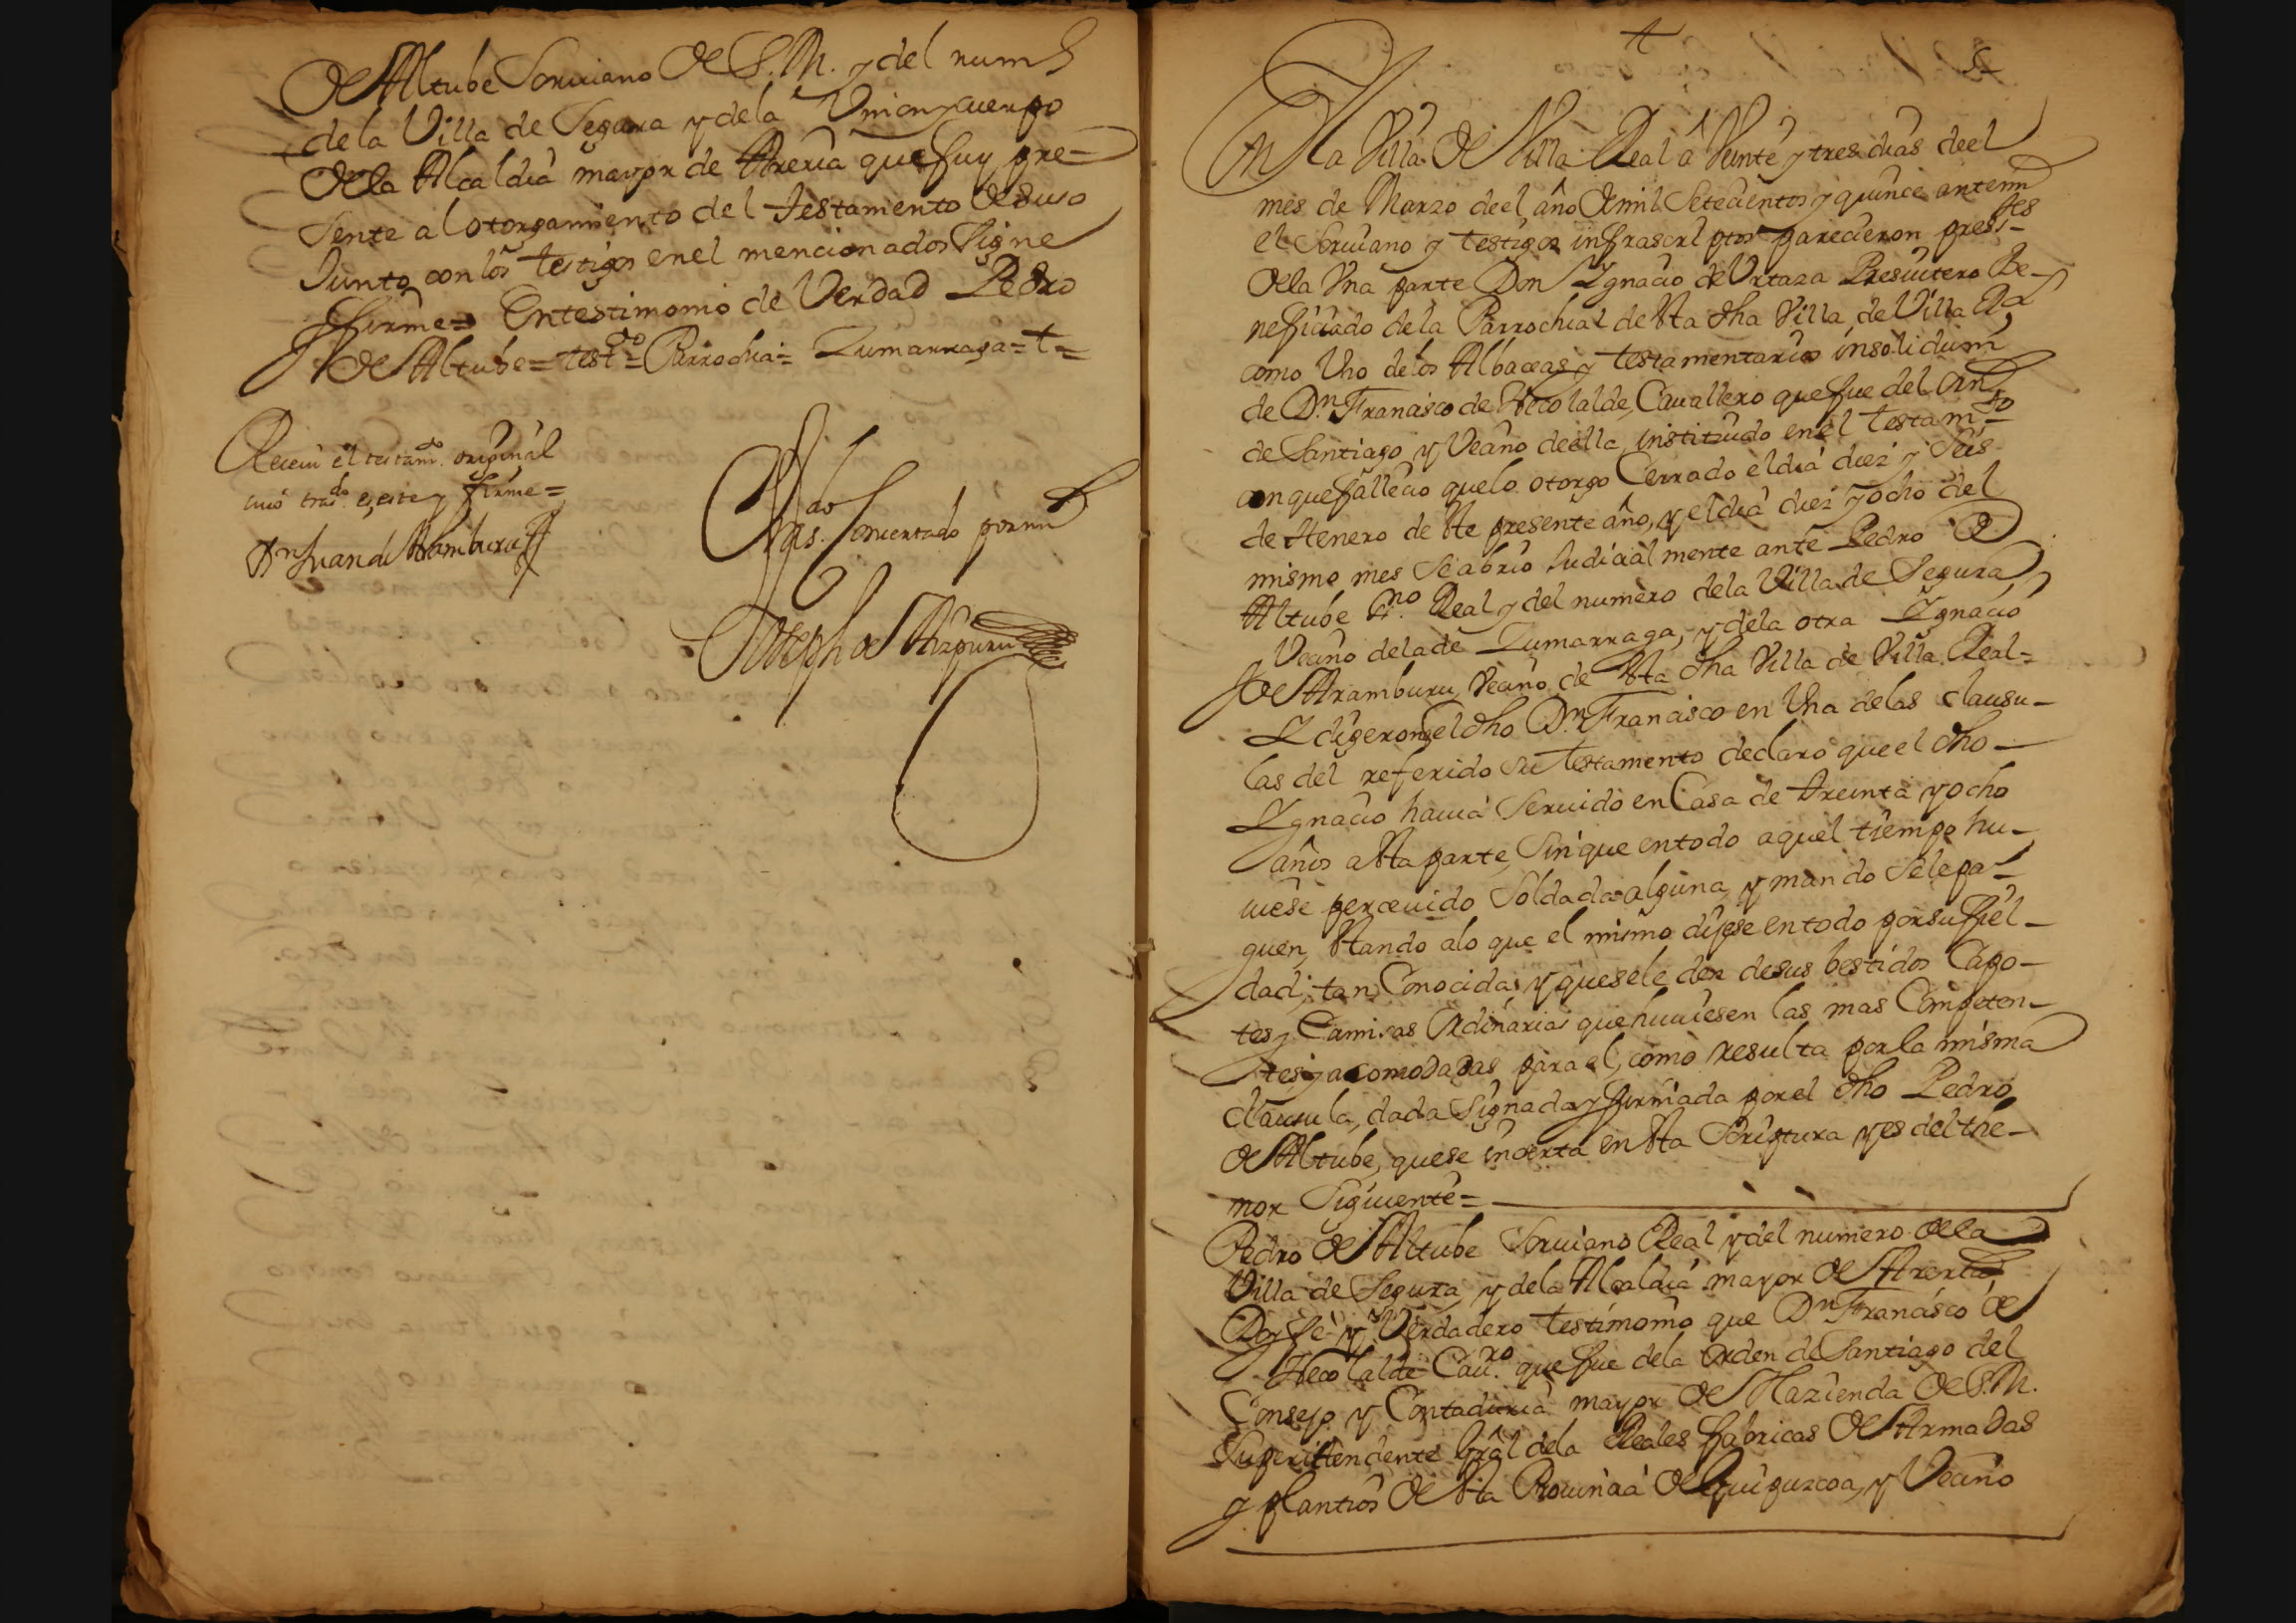 de Altube Scriuano de S. M. y del num.º
de la Villa de Segura y de la Union y cuerpo
de la Alcaldia mayor de Areria que fuy pre-
sente al otorgamiento del testamento de suso
Junto con los testigos en el mencionados Signe
y firme= En testimonio de Verdad Pedro
de Altube= testdo= Parrochia= Zumarraga= t=
Receui el testamto. original
cuio trasdo. es este y firme=
Dn Juan de Aramburu
Corregido
Concertado por mi
Joseph de Aizpuru
En la Villa de Villa Real â Veinte y tres dias de el
mes de Marzo de el año de mil Setecientos y quince ante mi
el Scriuano y testigos infrascriptos parecieron presstes
de la Vna parte Don Ygnacio de Vrtaza Presuitero Be-
neficiado de la Parrochial de sta dha Villa de Villa Rl
como Vno de los Albaceas y testamentarios insolidum
de Dn. Francisco de Necolalde, Cauallero que fue del ordn
de Santiago y Vecino de ella, instituido en el testamto
con que fallecio que lo otorgo Cerrado el dia diez y Seis
de Henero de ste presente año, y el dia diez y ocho del
mismo mes Se abrio Judicialmente ante Pedro de
Altube Sno. Real y del numero de la Villa de Segura
Vecino de la de Zumarraga, y de la otra Ygnacio
de Aramburu, Vecino de sta dha Villa de Villa Real=
Y digeron q el dho Dn. Francisco en Vna de las clausu-
las del referido su testamento declaro que el dho
Ygnacio hauia Seruido en Casa de treinta y ocho
años a sta parte, Sin que en todo aquel tiempo hu-
uiese perceuido Soldada alguna, y mando Se le pa-
guen, stando a lo que el mismo dijese en todo por su fiel-
dad, tan Conocida, y que se le den de sus bestidos Capo-
tes y Camisas Ordinarias que huuiesen las mas Competen-
tes y acomodadas para el, como resulta por la misma
clausula, dada Signada y firmada por el dho Pedro
de Altube, que se inserta en sta Scriptura y es del the-
nor Siguiente=
Pedro de Altube Scriuano Real y del numero de la
Villa de Segura, y de la Alcaldia mayor de Areria
Doy fe y Verdadero testimonio que Dn Francisco de
Necolalde Cauro. que fue de la orden de Santiago del
Consejo y Contaduria mayor de Hazienda de S. M.
Superintendente Gral de la Reales fabricas de Armadas
y plantios de sta Prouincia de Guipuzcoa, y Vecino